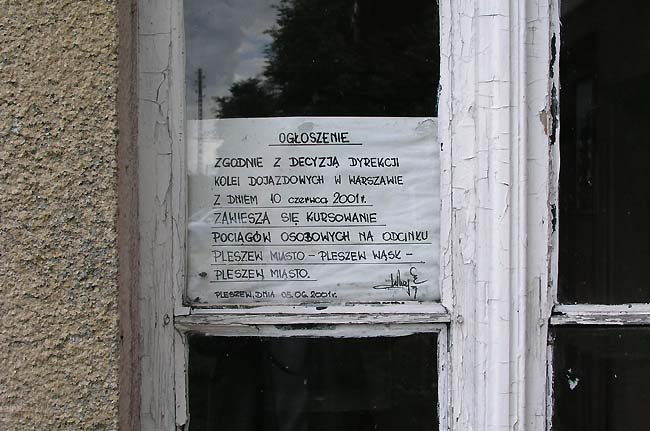 OGŁOSZENIE
ZGODNIE Z DECYZJĄ DYREKCJI
KOLEI DOJAZDOWYCH W WARSZAWIE
Z DNIEM 10 czerwca 2001r.
ZAWIESZA SIĘ KURSOWANIE
POCIĄGÓW OSOBOWYCH NA ODCINKU
PLESZEW MIASTO - PLESZEW WĄSK -
PLESZEW MIASTO.
PLESZEW, DNIA 05.06.2001r.